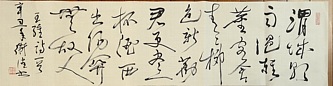 渭城朝
雨浥輕
塵客舍
青青柳
色新勸
君更盡一
杯酒西
出陽關
無故人
王維詩
辛丑